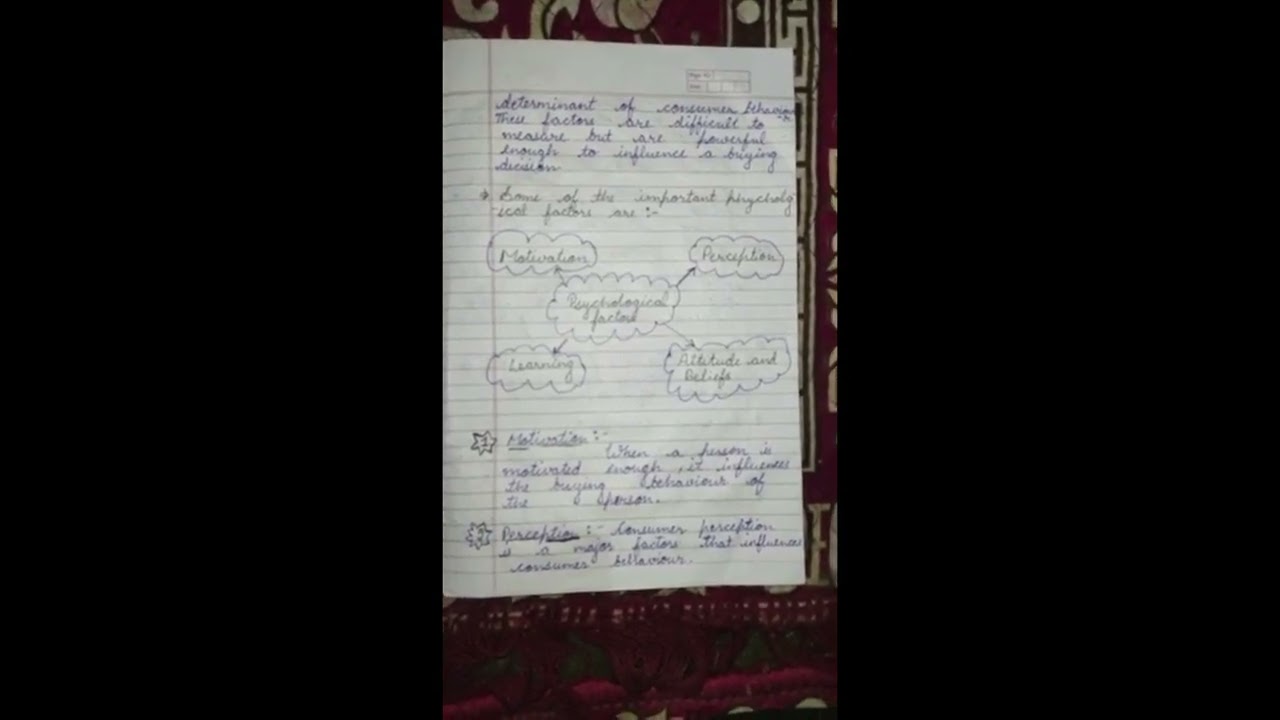 Page No.
Date
determinant of consumer behaviour
These factors are difficult to
measure but are powerful
enough to influence a buying
decision.
→ Some of the important phycholog
-ical factors are :-
Motivation
Perception
Psychological
factors
Learning
Attitude and
Beliefs
1 Motivation :-
When a person is
motivated enough , it influences
the buying behaviour of
the person.
2 Perception :- Consumer perception
is a major factors that influences
consumer behaviour.